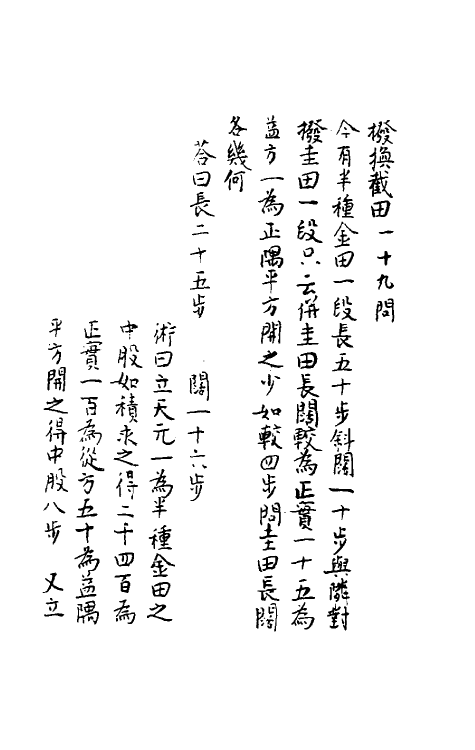 撥換截田一十九問
今有半種金田一段長五十步斜闊一十步與隣對
撥圭田一段只云併圭田長闊較為正實一十五為
益方一為正隅平方開之少如較四步問圭田長闊
各幾何
荅曰長二十五步　闊一十六步
術曰立天元一為半種金田之
中股如積求之得二千四百為
正實一百為從方五十為益隅
平方開之得中股八步　又立